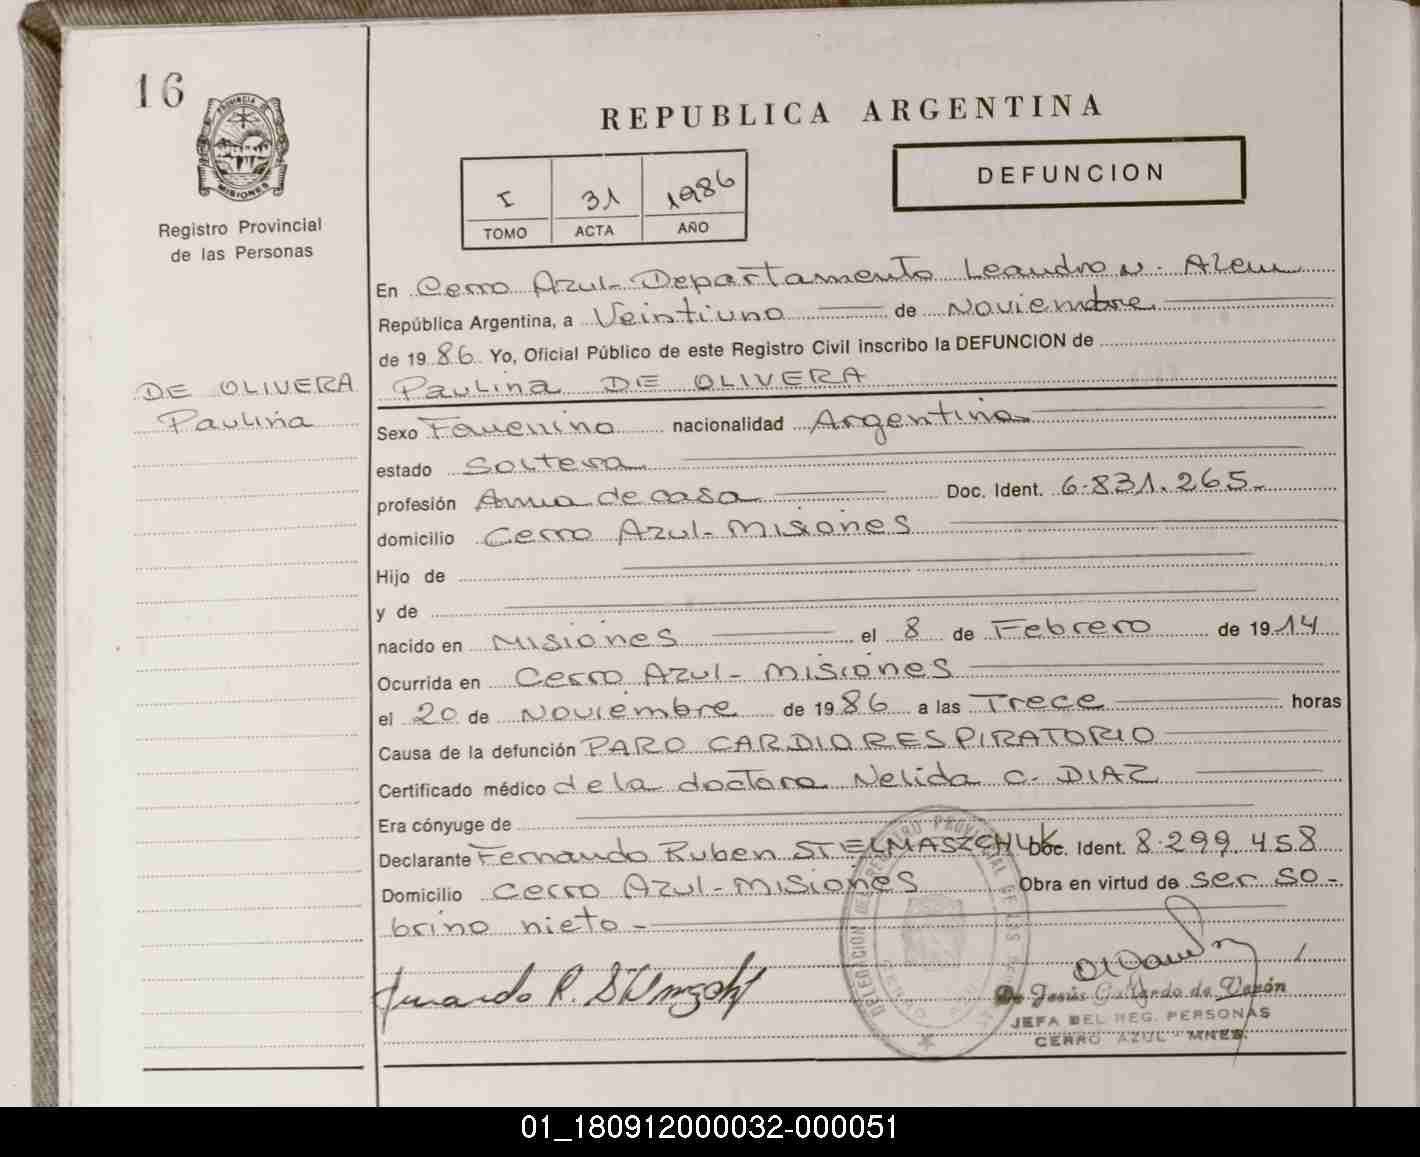 16
PROVINCIA DE
MISIONES
Registro Provincial
de las Personas
DE OLIVERA
Paulina
REPUBLICA ARGENTINA
I 31 1986
TOMO ACTA AÑO
DEFUNCION
En Cerro Azul-Departamento Leandro N. Alem
República Argentina, a Veintiuno de Noviembre
de 1986 Yo, Oficial Público de este Registro Civil inscribo la DEFUNCION de
Paulina DE OLIVERA
Sexo Femenino nacionalidad Argentina
estado Soltera
profesión Ama de casa Doc. Ident. 6.831.265.-
domicilio Cerro Azul-Misiones
Hijo de
y de
nacido en Misiones el 8 de Febrero de 1914
Ocurrida en Cerro Azul- Misiones
el 20 de Noviembre de 1986 a las Trece horas
Causa de la defunción PARO CARDIORESPIRATORIO
Certificado médico de la doctora Nelida C. DIAZ
Era cónyuge de
Declarante Fernando Ruben STELMASZCHUK Doc. Ident. 8.299.458
Domicilio Cerro Azul-Misiones Obra en virtud de ser so-
brino nieto-
De Jesús Gallardo de
JEFA DEL REG. PERSONAS
CERRO AZUL - MNES.
01_180912000032-000051